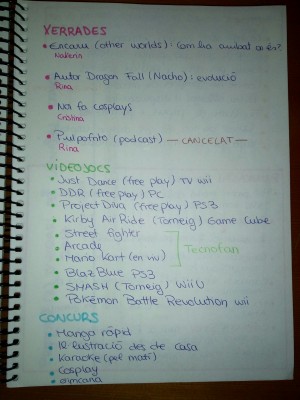 XERRADES
• Encara (other worlds): Com ha canviat on en?
Nallerin
• Autor Dragon Fall (Nacho): evolució
Rina
• Noi fa cosplays
Cristina
• Pulpofrito (podcast) — CANCELAT —
Rina
VIDEOJOCS
• Just Dance (free play) TV wii
• DDR (free play) PC
• Project Diva (free play) PS3
• Kirby Air Ride (Torneig) Game Cube
• Street fighter
• Arcade
• Mario Kart (en viu)
Tecnofan
• BlazBlue PS3
• SMASH (Torneig) Wii U
• Pokémon Battle Revolution wii
CONCURS
• Manga ràpid
• Il·lustració des de casa
• Karaoke (pel matí)
• Cosplay
• Gimcana